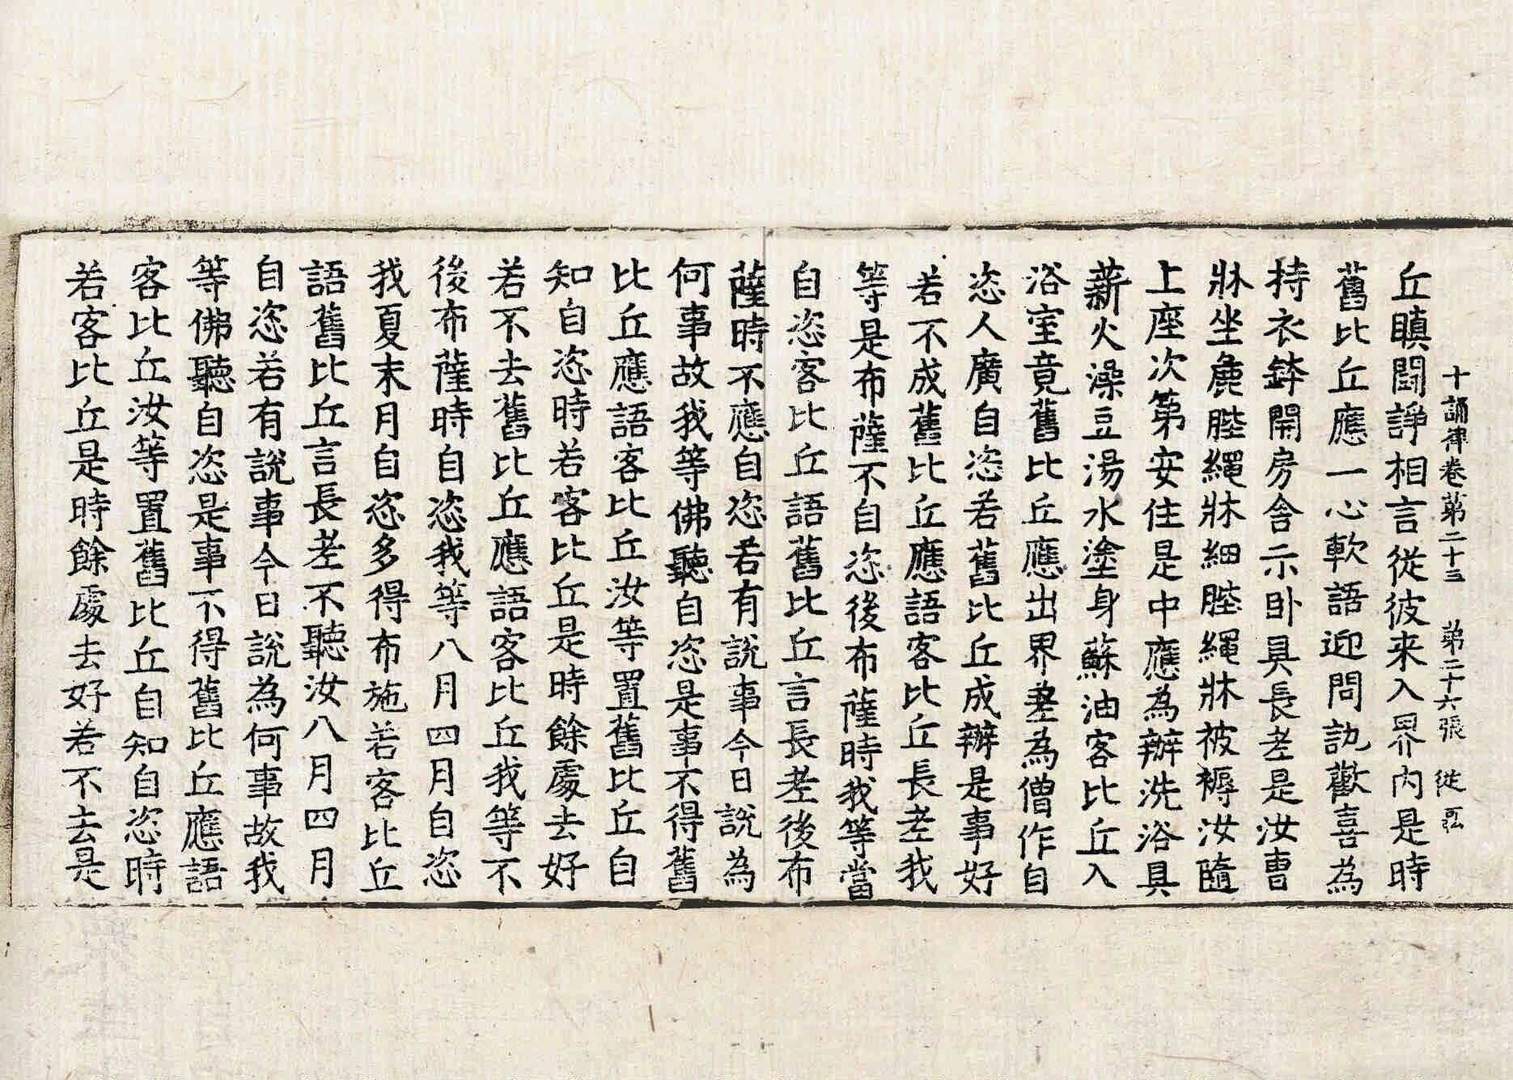 十誦律卷第二十三 第二十六張 從
丘瞋鬪諍相言從彼来入界内是時
舊比丘應一心軟語迎問訊歡喜為
持衣鉢開房舍示卧具長老是汝曺
牀坐麁陛繩牀細陛繩牀被褥汝隨
上座次第安住是中應為辦洗浴具
薪火澡豆湯水塗身蘇油客比丘入
浴室竟舊比丘應出界羞為僧作自
恣人廣自恣若舊比丘成辦是事好
若不成舊比丘應語客比丘長老我
等是布薩不自恣後布薩時我等當
自恣客比丘語舊比丘言長老後布
薩時不應自恣若有說事今日說為
何事故我等佛聽自恣是事不得舊
比丘應語客比丘汝等置舊比丘自
知自恣時若客比丘是時餘處去好
若不去舊比丘應語客比丘我等不
後布薩時自恣我等八月四月自恣
我夏末月自恣多得布施若客比丘
語舊比丘言長老不聽汝八月四月
自恣若有說事今日說為何事故我
等佛聽自恣是事不得舊比丘應語
客比丘汝等置舊比丘自知自恣時
若客比丘是時餘處去好若不去是